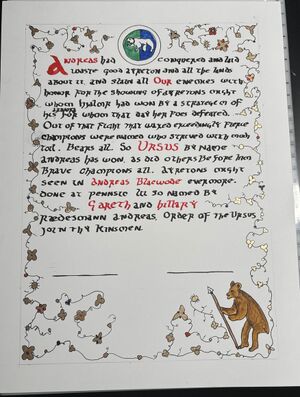 Andreas had conquered and laid
waste good Ayreton and all the lands
about it and slain all Our enemies with
honor for the showing of Ayretons might
whom Hjalmr had won by a stratagem of
his for whom that day her foes defeated.
Out of that fight that waxed exceedingly fierce
champions were named who strived with much
toil. Bears all. So Ursus by name
Andreas has won, as did others before him
Brave champions all. Ayretons might
seen in Andreas Blacwode evermore.
Done at Pennsic LI so named by
Gareth and Hillary
Raedesmann Andreas, Order of the Ursus
join thy kinsmen.